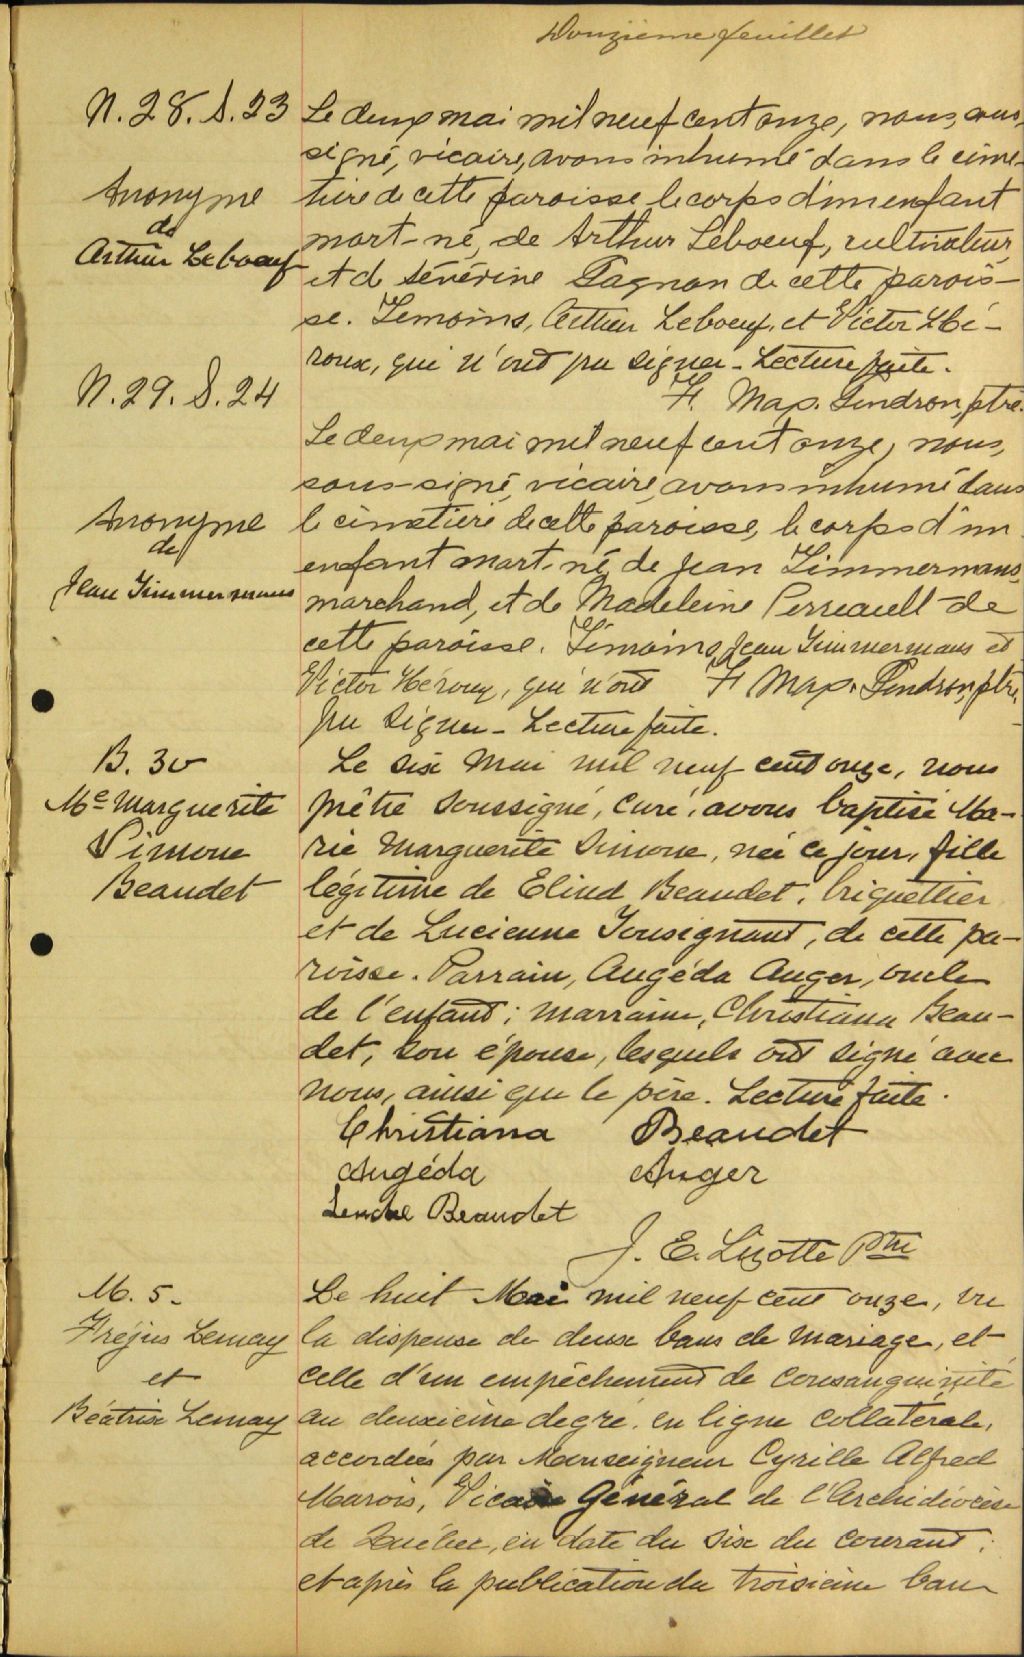 Douzième feuillet
N. 28. S. 23
Anonyme
de
Arthur Leboeuf
Le deux mai mil neuf cent onze, nous, sous-
signé, vicaire, avons inhumé dans le cime-
tière de cette paroisse le corps d'un enfant
mort-né, de Arthur Leboeuf, cultivateur,
et de Sévérine Gagnon de cette parois-
se. Témoins, Arthur Leboeuf, et Victor Hé-
roux, qui n'ont pu signer - Lecture faite.
F. Map. Gendron, ptre.
N. 29. S. 24
Anonyme
de
Jean Timmermans
Le deux mai mil neuf cent onze, nous,
sous-signé, vicaire, avons inhumé dans
le cimetière de cette paroisse, le corps d'un
enfant mort-né, de Jean Timmermans,
marchand, et de Madeleine Perreault de
cette paroisse. Témoins, Jean Timmermans et
Victor Héroux, qui n'ont
F. Map. Gendron, ptre.
pu signer - Lecture faite.
B. 30
Mie Marguerite
Simone
Beaudet
Le six Mai mil neuf cent onze, nous
prêtre soussigné, curé, avons baptisé Ma-
rie Marguerite Simone, née ce jour, fille
légitime de Eliud Beaudet, briquettier
et de Lucienne Tousignant, de cette pa-
roisse. Parrain, Augéda Auger, oncle
de l'enfant; marraine, Christiana Beau-
det, son épouse, lesquels ont signé avec
nous, ainsi que le père. Lecture faite.
Christiana Beaudet
Augéda Auger
Beaudet
J. E. Lizotte Ptre
M. 5-
Fréjus Lemay
et
Béatrix Lemay
Le huit Mai mil neuf cent onze, vu
la dispense de deux bans de mariage, et
celle d'un empêchement de consanguinité
au deuxième degré en ligne collatérale,
accordées par Monseigneur Cyrille Alfred
Marois, Vicaire Général de l'Archidiocèse
de Québec, en date du six du courant;
et après la publication du troisième ban